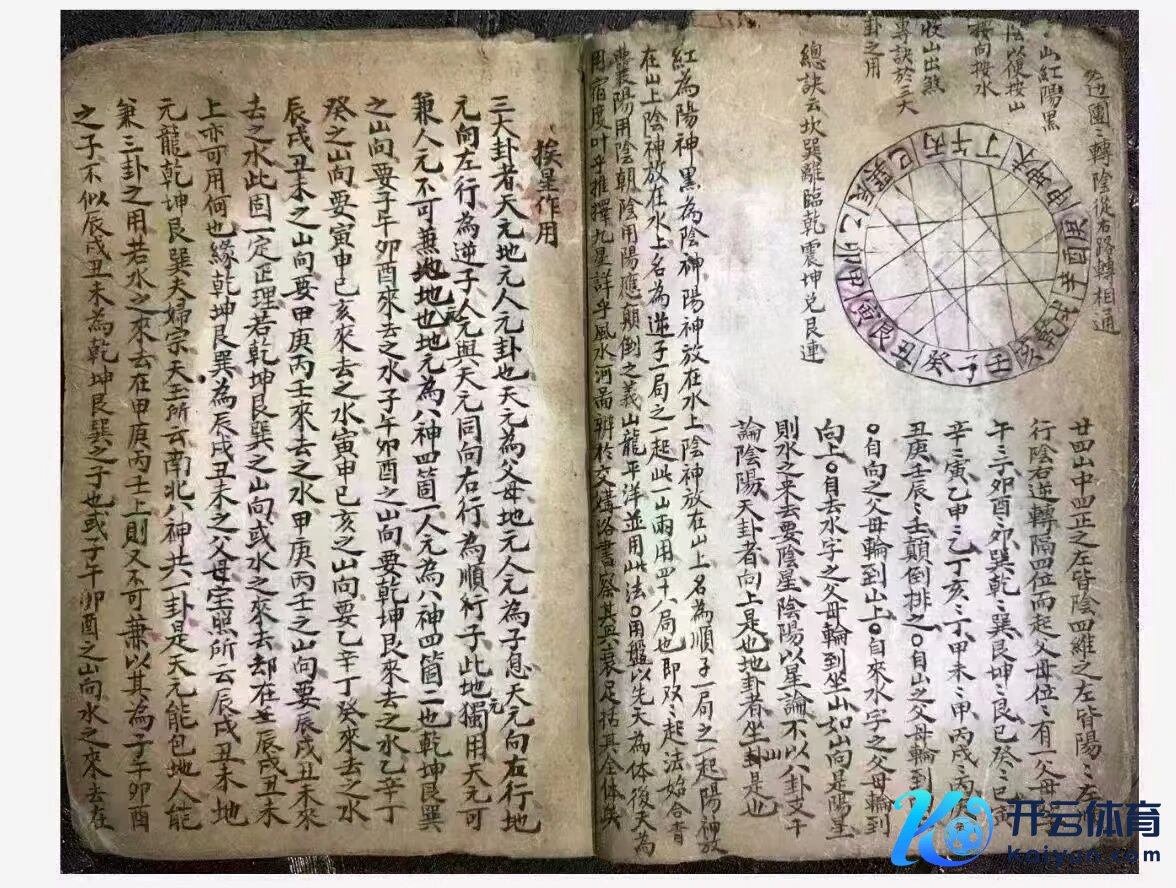 公邊團〻轉陰從右路轉相通
山紅陽黑
陰以便按山
按向撥水
收山出煞
專訣於三天
卦之用
總訣云坎巽離臨乾震坤兌艮連
壬子癸丑艮寅甲卯乙辰巽巳丙午丁未坤申庚酉辛戌乾亥
廿四山中四正之左皆陰四維之左皆陽〻左
行陰右逆轉隔四位而起父母位〻有一父母
午〻卯酉〻卯巽乾〻巽艮坤〻艮巳癸〻巳
辛〻寅乙申〻乙丁亥〻丁甲未〻甲丙戌〻丙
丑庚壬辰〻壬顛倒排之〇自山之父母輪到
〇自向之父母輪到山上〇自來水字之父母輪到
向上〇自去水字之父母輪到坐山如山向是陽星
則水之來去要陰星陰陽以星論不以八卦支干
論陰陽天卦者向上是也地卦者坐卦是也
紅為陽神黑為陰神陽神放在水上陰神放在山上名為順子一局之一起陽神放
在山上陰神放在水上名為逆子一局之一起此山兩用四十八局也即双〻起法始合青
囊陽用陰朝陰用陽應顛倒之義山龍平洋並用此法〇用盤以先天為體後天為
用宿度叶乎推擇九星詳乎風水河畐辨於交媾洛書察其
挨星作用
三大卦者天元地元人元卦也天元為父母地元人元為子息天元向右行地
元向左行為逆子人元與天元同向右行為順行子此地元獨用天元可
兼人元不可兼地元地也地元為八神四箇一人元為八神四箇二也乾坤艮巽
之山向要子午卯酉來去之水子午卯酉之山向要乾坤艮來去之水乙辛丁
癸之山向要寅申巳亥來去之水寅申巳亥之山向要乙辛丁癸來去之水
辰戌丑未之山向要甲庚丙壬來去之水甲庚丙壬之山向要辰戌丑未來
去之水此固一定正理若乾坤艮巽之山向或水之來去却在辰戌丑未
上亦可用何也緣乾坤艮巽為辰戌丑未之父母宝照所云辰戌丑未地
元龍乾坤艮巽夫婦宗天玉所云南北八神共一卦是天元能包地人能
兼三卦之用若水之來去在甲庚丙壬上則又不可兼以其為子午卯酉
之子不似辰戌丑未為乾坤艮巽之子也或子午卯酉之山向水之來去在
开云体育
kaiyun.com